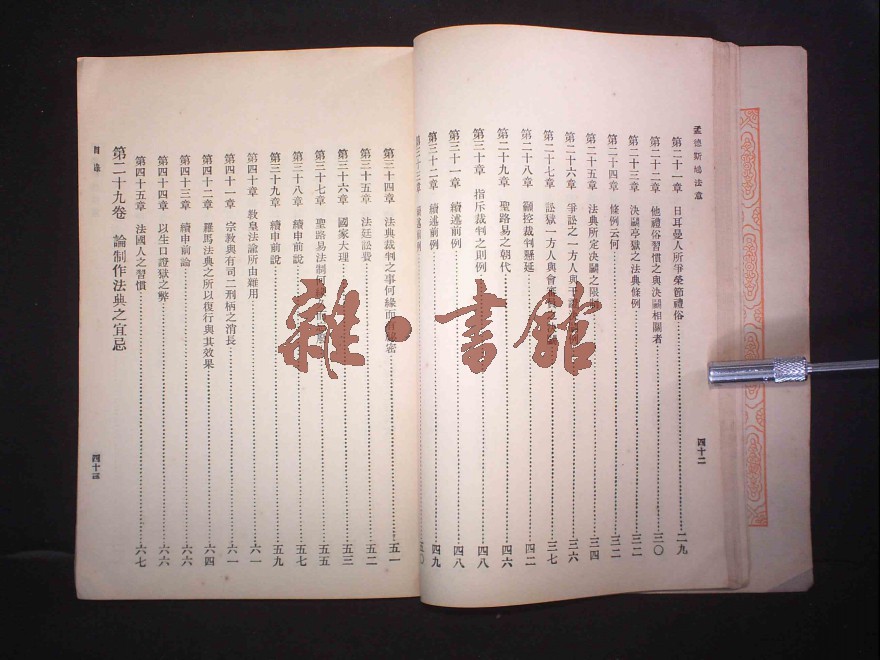 孟德斯鳩法意
第二十一章 日耳曼人所爭榮節禮俗 二九
第二十二章 他禮俗習慣之與決鬬相關者 三〇
第二十三章 決鬬亭獄之法典條例 三二
第二十四章 條例云何 三二
第二十五章 法典所定決鬬之限 三四
第二十六章 爭訟之一方人與 三六
第二十七章 訟獄一方人與會審 三七
第二十八章 顧控裁判懸延 四二
第二十九章 聖路易之朝代 四六
第三十章 指斥裁判之則例 四八
第三十一章 續述前例 四八
第三十二章 續述前例 四九
第三十三章 續述前例 五〇
四十二
第三十四章 法典裁判之事何緣而 密 五一
第三十五章 法廷訟費 五二
第三十六章 國家大理 五三
第三十七章 聖路易法制何 五五
第三十八章 續申前說 五七
第三十九章 續申前說 五九
第四十章 教皇法論所由雜用 六一
第四十一章 宗教與有司二刑柄之消長 六一
第四十二章 羅馬法典之所以復行與其效果 六四
第四十三章 續申前論 六六
第四十四章 以生口證獄之弊 六六
第四十五章 法國人之習慣 六七
第二十九卷 論制作法典之宜忌
目錄
四十三
雜·書館